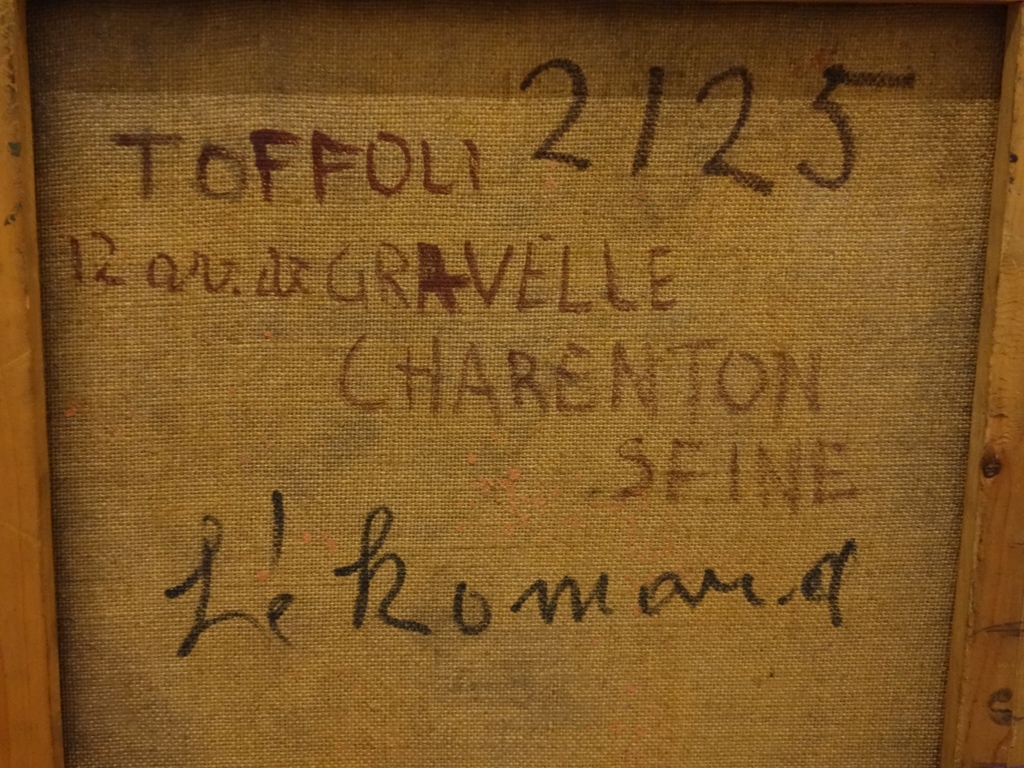 TOFFOLI 2125
12 av. de GRAVELLE
CHARENTON
SEINE